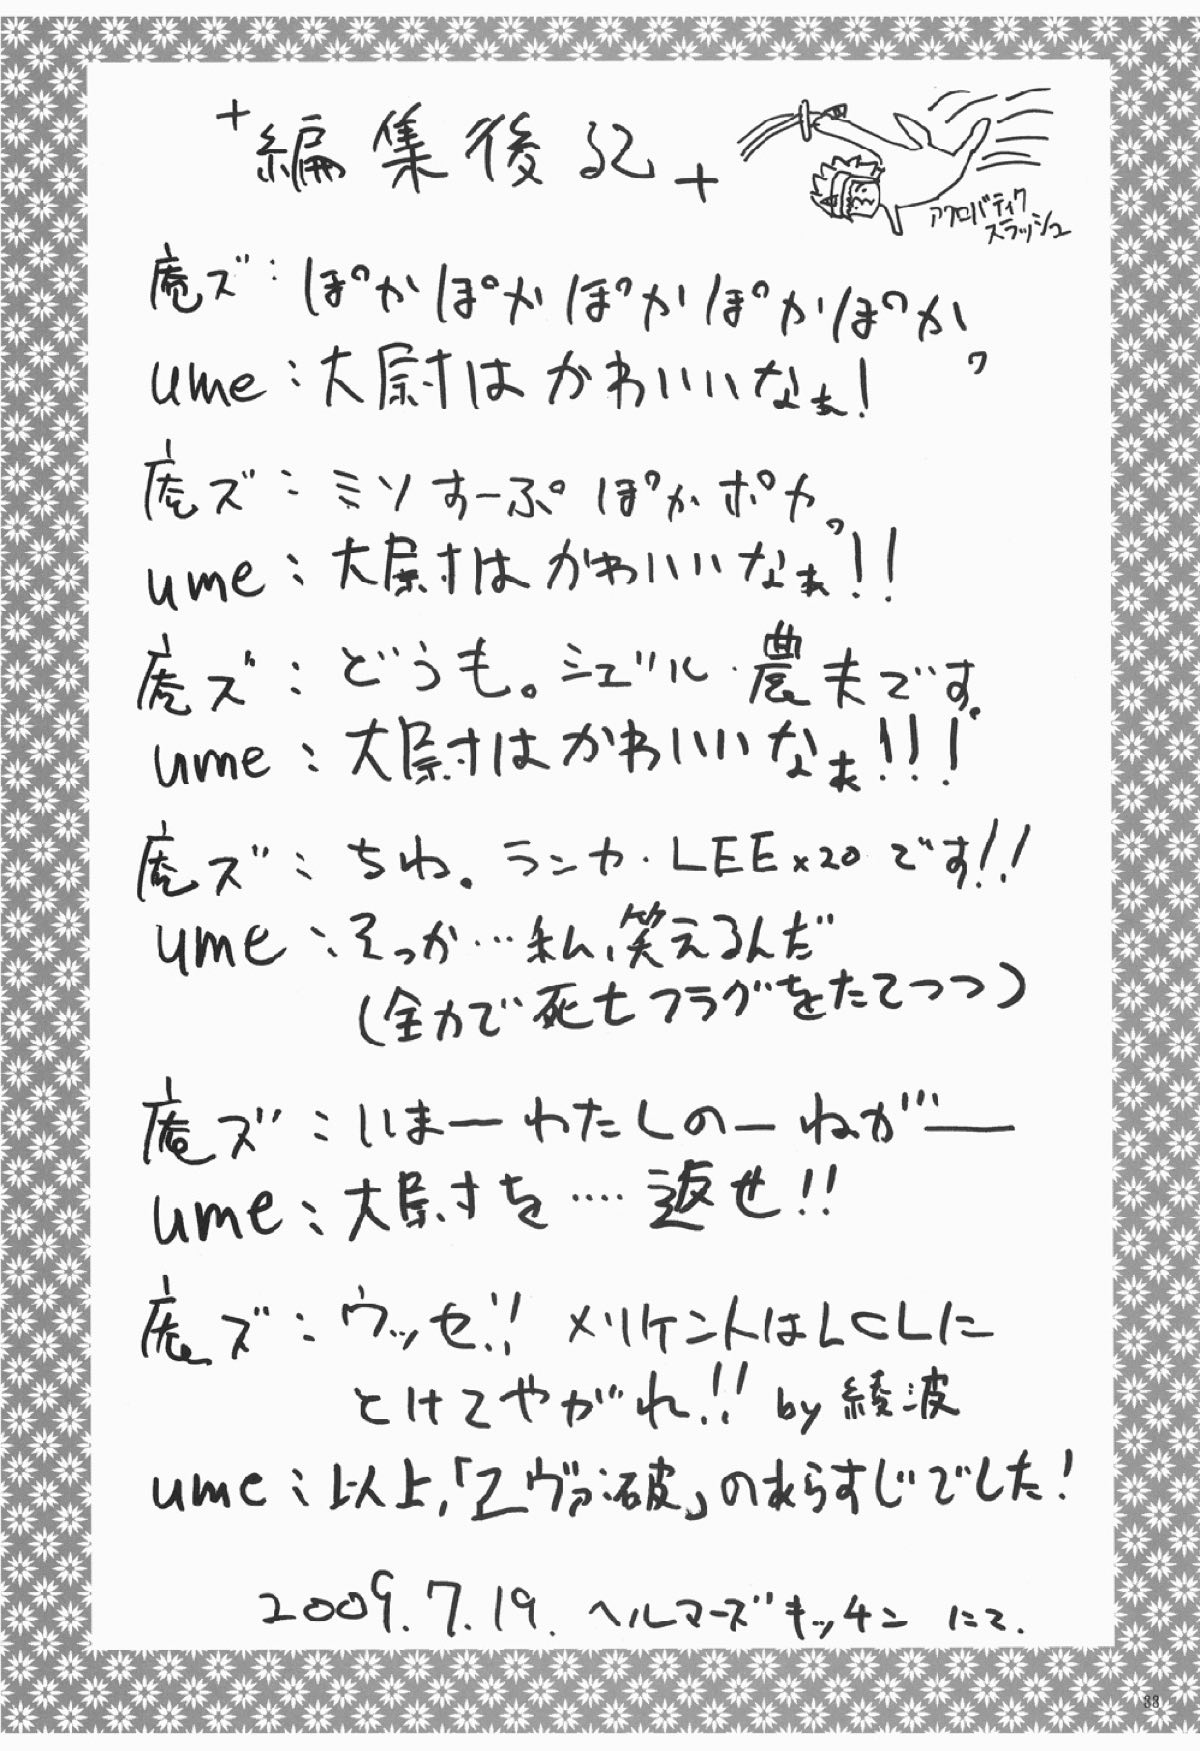 +編集後記+
アクロバティック
スラッシュ
庵ズ:ぽかぽかぽかぽかぽか。
ume:大尉はかわいいなぁ!
庵ズ:ミソすーぷぽかポカ。
ume:大尉はかわいいなぁ!!
庵ズ:どうも。シゲル・農夫です。
ume:大尉はかわいいなぁ!!!
庵ズ:ちわ。ランカ・LEE×20です!!
ume:そっか…私、笑えるんだ
(全力で死亡フラグをたてつつ)
庵ズ:いまーわたしのーねがーー
ume:大尉を‥‥返せ!!
庵ズ:ウッセ!! メリケントはLCLに
とけてやがれ!! by綾波
ume:以上,「ヱヴァ:破」のあらすじでした!
2009.7.19. ヘルマーズキッチン にて.
33